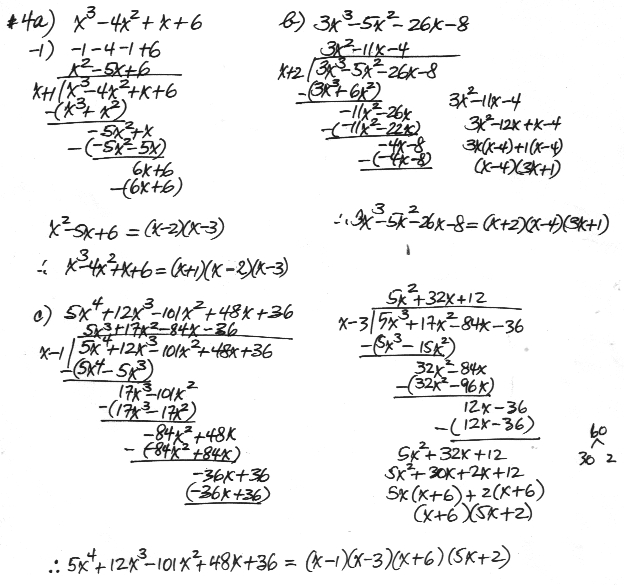 *4a) x³-4x²+x+6
-1) -1-4-1+6
x²-5x+6
x+1 | x³-4x²+x+6
-(x³+x²)
-5x²+x
-(-5x²-5x)
6x+6
-(6x+6)
x²-5x+6 = (x-2)(x-3)
∴ x³-4x²+x+6 = (x+1)(x-2)(x-3)
b) 3x³-5x²-26x-8
3x²-11x-4
x+2 | 3x³-5x²-26x-8
-(3x³+6x²)
-11x²-26x
-(-11x²-22x)
-4x-8
-(-4x-8)
3x²-11x-4
3x²-12x+x-4
3x(x-4)+1(x-4)
(x-4)(3x+1)
∴ 3x³-5x²-26x-8 = (x+2)(x-4)(3x+1)
c) 5x⁴+12x³-101x²+48x+36
5x³+17x²-84x-36
x-1 | 5x⁴+12x³-101x²+48x+36
-(5x⁴-5x³)
17x³-101x²
-(17x³-17x²)
-84x²+48x
-(-84x²+84x)
-36x+36
(-36x+36)
5x²+32x+12
x-3 | 5x³+17x²-84x-36
-(5x³-15x²)
32x²-84x
-(32x²-96x)
12x-36
-(12x-36)
5x²+32x+12
5x²+30x+2x+12
5x(x+6)+2(x+6)
(x+6)(5x+2)
60
30 2
∴ 5x⁴+12x³-101x²+48x+36 = (x-1)(x-3)(x+6)(5x+2)